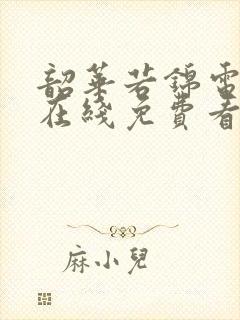 韶華若錦電
在綫免費看
麻小兒